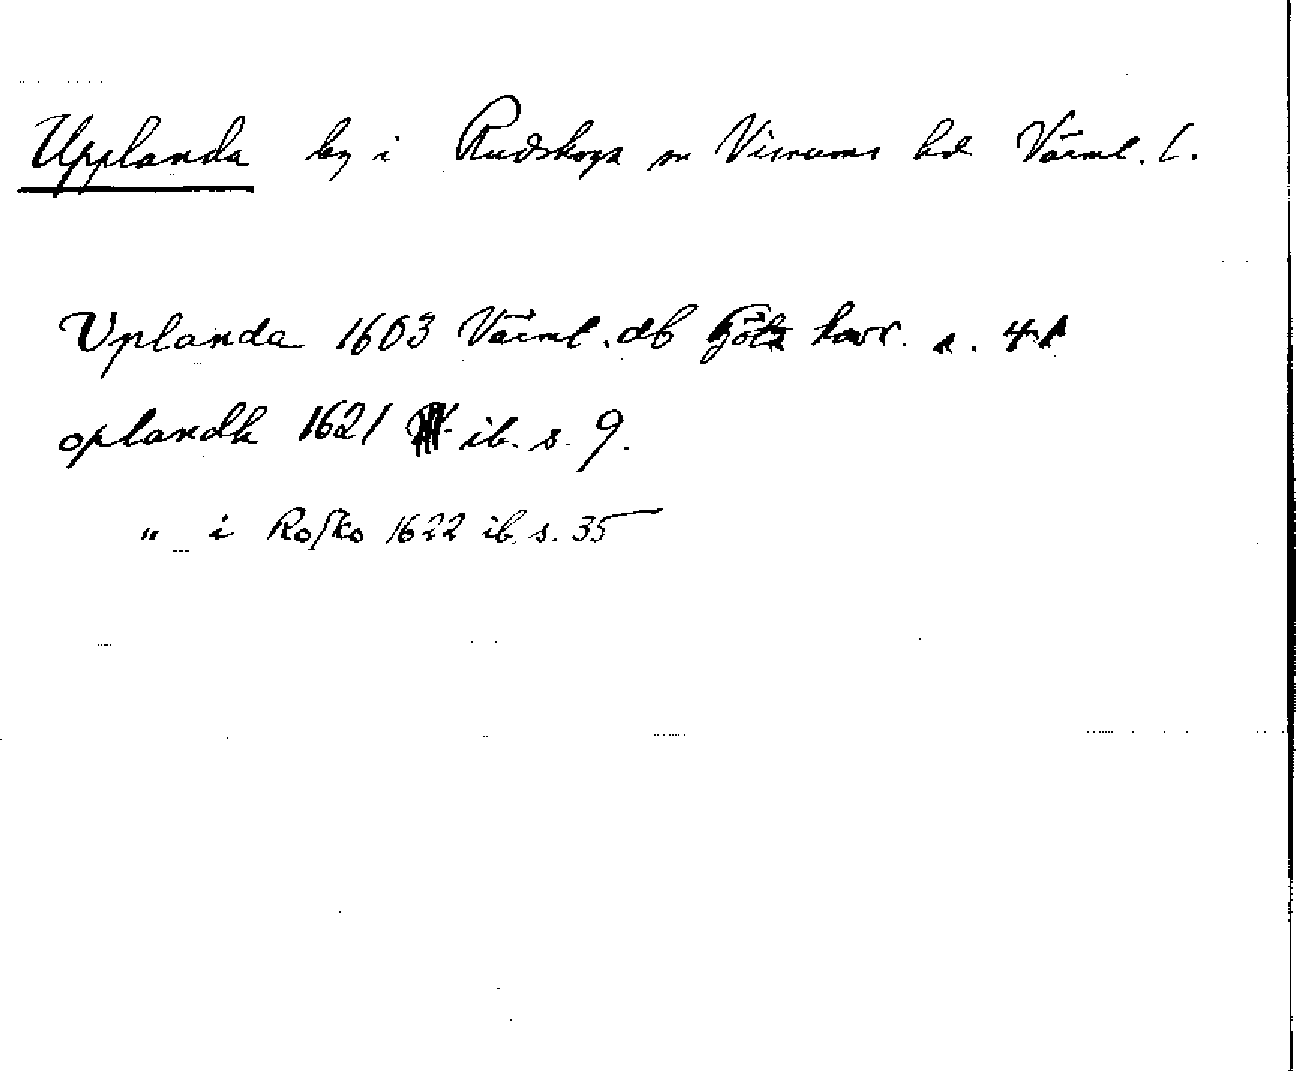 Upplanda by i Rudskoga sn Visnums hd Värml. l.
Uplanda 1603 Värml. db Göta hovr. s. 41
oplandh 1621 ib. s. 9.
" i Roſko 1622 ib. s. 35